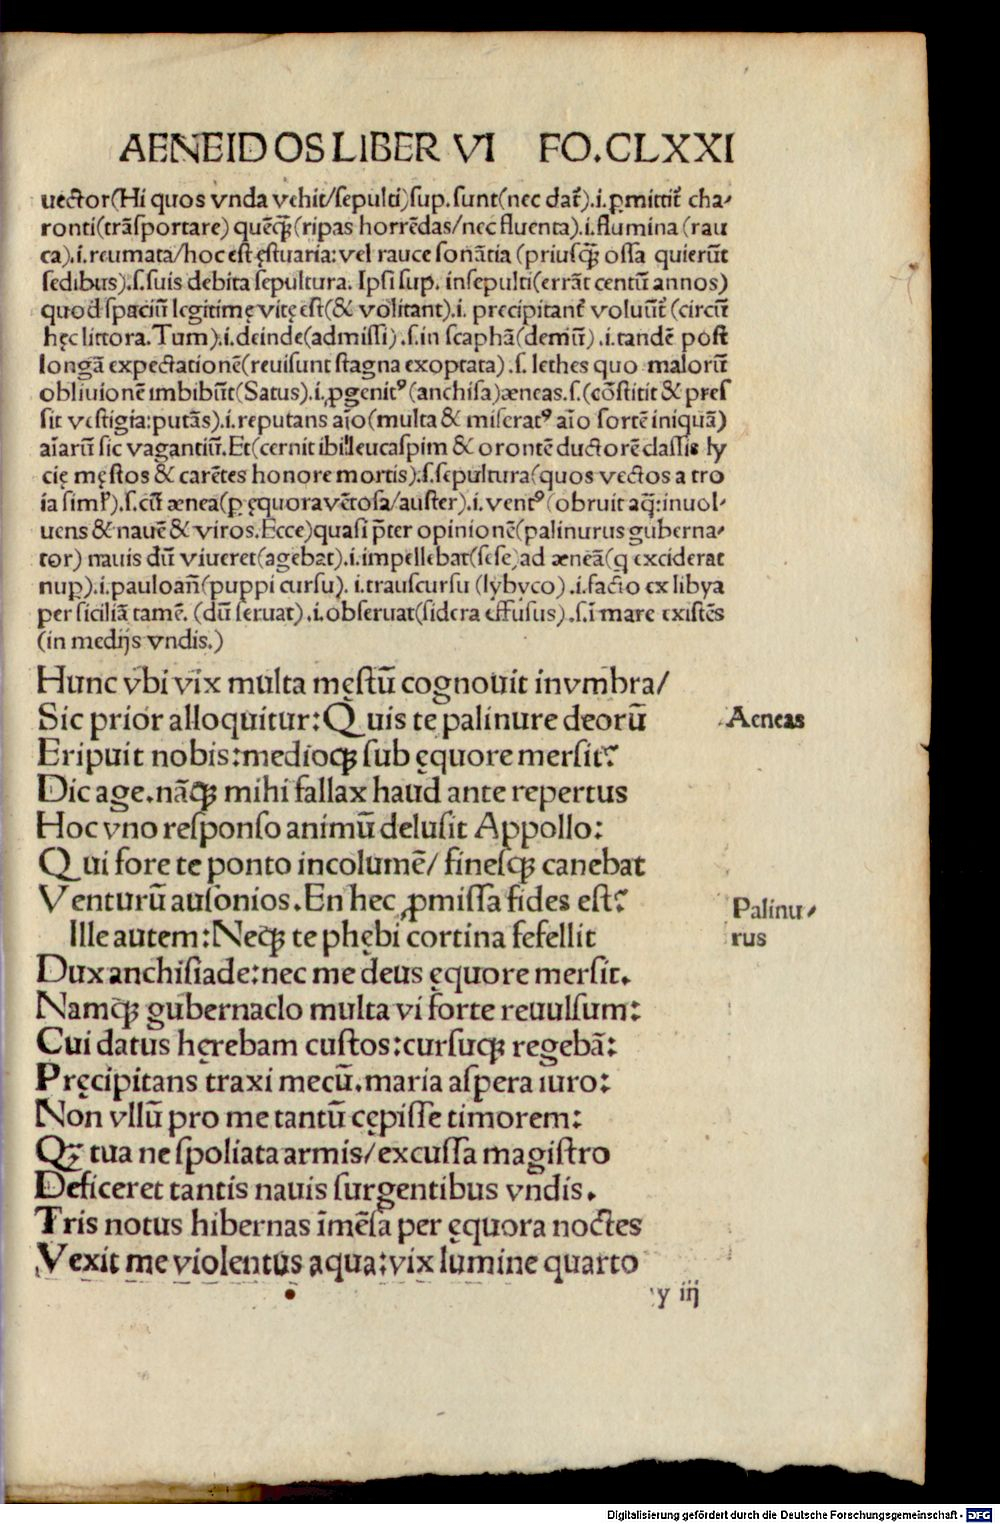 AENEIDOS LIBER VI FO.CLXXI
uector(Hi quos vnda vehit/sepulti)sup. sunt(nec dat᷑).i.ꝑmittit᷑ cha⸗
ronti(trāsportare) quēqꝫ(ripas horrēdas/nec fluenta).i.flumina (rau
ca).i.reumata/hoc est ęstuaria: vel rauce sonātia (priusqꝫ ossa quierūt
sedibus).s.suis debita sepultura. Ipsi sup. insepulti(errāt centū annos)
quod spaciū legitimę vitę est(& volitant).i. precipitant᷑ voluūt᷑ (circū
hęc littora. Tum).i.deinde(admissi).s.in scaphā(demū).i.tandē post
longā expectationē(reuisunt stagna exoptata).s. lethes quo malorū
obliuionē imbibūt(Satus).i.ꝓgenitꝰ(anchisa)æneas.s.(cōstitit & pres
sit vestigia:putās).i.reputans aīo(multa & miseratꝰ aīo sortē iniquā)
aīarū sic vagantiū.Et(cernit ibi:leucaspim & orontē ductorē classis ly
cię męstos & carētes honore mortis).s.sepultura(quos vectos a tro
ia simꝉ).s.cū ænea(ꝑ ęquora vētosa/auster).i.ventꝰ(obruit aq̄:inuol⸗
uens & nauē & viros.Ecce)quasi p̄ter opinionē(palinurus guberna⸗
tor) nauis dū viueret(agebat).i.impellebat(sese)ad æneā(q exciderat
nuꝑ).i.pauloan̄(puppi cursu).i.trauscursu (lybyco).i.facto ex libya
per siciliā tamē. (dū seruat).i.obseruat(sidera effusus).s.ī mare existēs
(in medijs vndis.)
Hunc vbi vix multa męstū cognouit in vmbra/
Sic prior alloquitur:Quis te palinure deorū
Aeneas
Eripuit nobis:medioqꝫ sub ęquore mersit?
Dic age.nāqꝫ mihi fallax haud ante repertus
Hoc vno responso animū delusit Appollo:
Qui fore te ponto incolumē/ finesqꝫ canebat
Venturū ausonios.En hec ꝓmissa fides est?
Palinu⸗
rus
Ille autem:Neqꝫ te phębi cortina fefellit
Dux anchisiade:nec me deus ęquore mersit.
Namqꝫ gubernaclo multa vi forte reuulsum:
Cui datus hęrebam custos:cursuqꝫ regebā:
Pręcipitans traxi mecū.maria aspera iuro:
Non vllū pro me tantū cępisse timorem:
Qꝫ tua ne spoliata armis/excussa magistro
Deficeret tantis nauis surgentibus vndis.
Tris notus hibernas īmēsa per ęquora noctes
Vexit me violentus aqua:vix lumine quarto
y iij
Digitalisierung gefördert durch die Deutsche Forschungsgemeinschaft - DFG